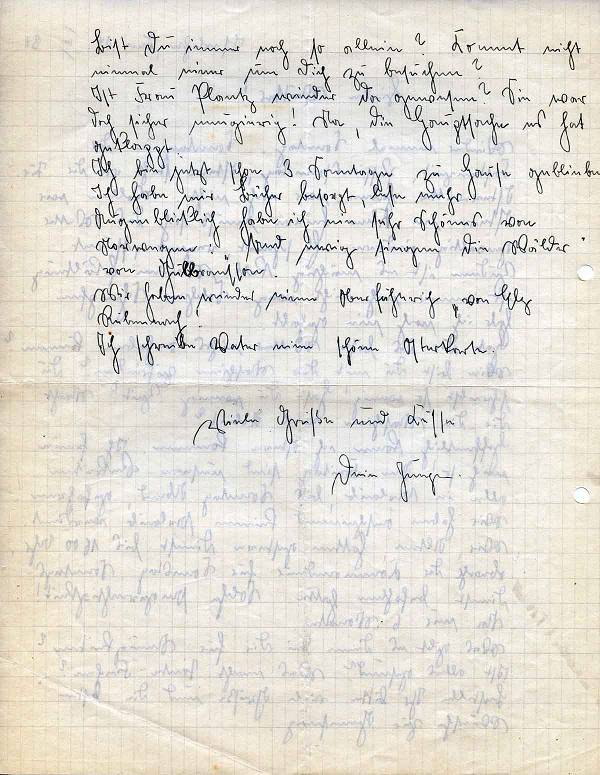 Bist Du immer noch so allein? Kommt nicht
einmal einer um Dich zu besuchen?
Ist Frau Plantz wieder da gewesen? Sie war
doch sicher neugierig! Na, die Hauptsache es hat
geklappt.
Ich bin jetzt schon 3 Sonntage zu Hause geblieben
Ich habe mir Bücher besorgt, lese mehr.
Augenblicklich habe ich ein sehr Schönes von
Norwegen: Und ewig singen die Wälder
von Gulbranssen.
Wir haben wieder einen Oberfähnrich, von
Ich schreibe Vater eine schöne Osterkarte.
Viele Grüße und Küsse
Dein Junge.